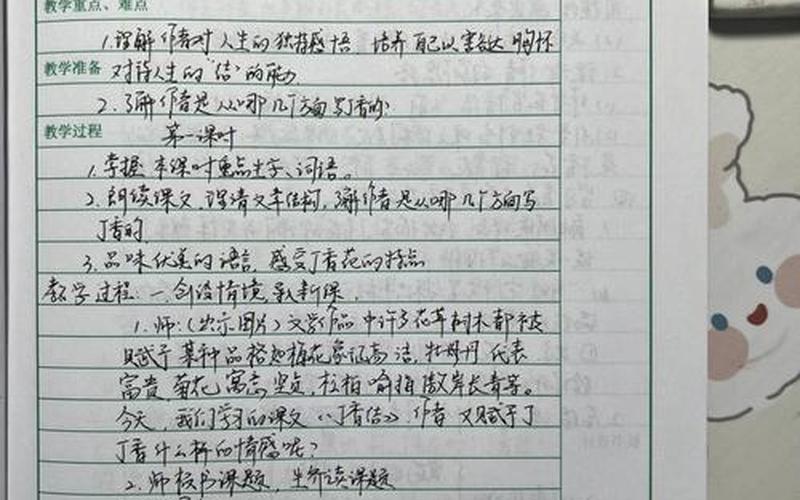 教学重点、难点
1.理解作者对人生的独特感悟,培养自己以豁达胸怀
教学准备 对待人生的"结"的能力
2.了解作者是从哪几个方面写丁香的
教学过程 第一课时
1.掌握本课时重点生字、词语。
2.朗读课文,理清文章结构,了解作者是从哪几个方面写
丁香的.
3.品味优美的语言,感受丁香花的特点
教学过程:一、创设情境,导入新课.
1.师:(出示图片)文学作品中许多花草树木都被
赋予某种品格如梅花象征高洁,牡丹代表
富贵,菊花寓意坚贞,松柏喻指傲岸长青等。
今天,我们学习的课文《丁香结》,作者又赋予丁
丁香什么样的情感呢?
2.师板书课题,生齐读课题